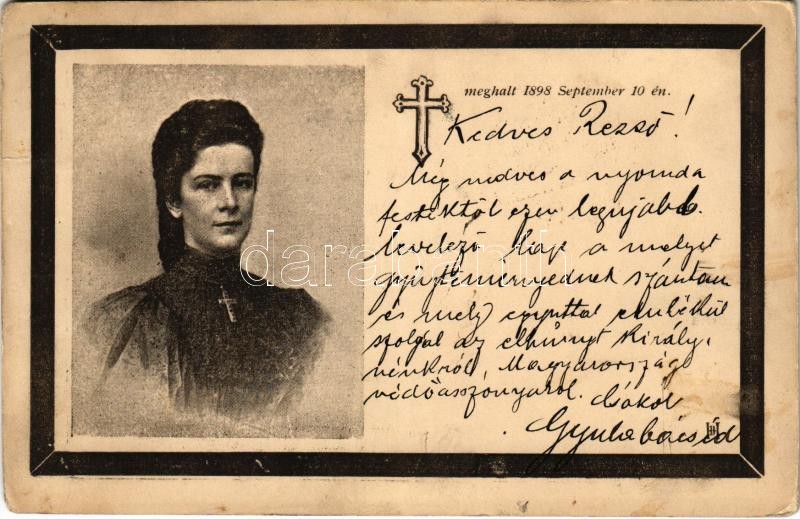 meghalt 1898 September 10 én.
Kedves Rezső!
Még nedves a nyomda
festéktől ezen legujabb
levelező lap a melyet
gyüjteményednek szántam
és mely egyuttal emlékül
szolgál az elhúnyt király-
nénkról, Magyarország
védőasszonyarol.
Csókol
Gyula bácsid
darabanth